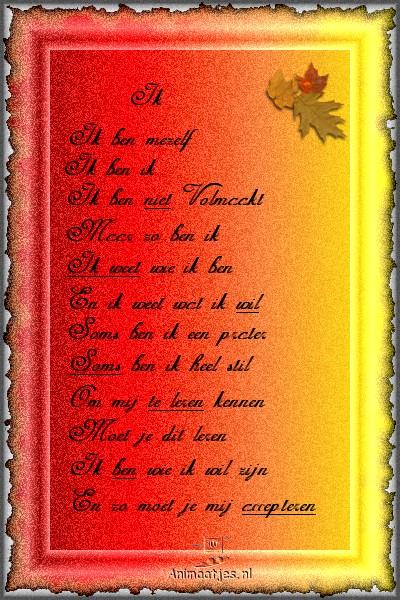 Ik
Ik ben mezelf
Ik ben ik
Ik ben niet Volmaakt
Maar zo ben ik
Ik weet wie ik ben
En ik weet wat ik wil
Soms ben ik een prater
Soms ben ik heel stil
Om mij te leren kennen
Moet je dit leren
Ik ben wie ik wil zijn
En zo moet je mij accepteren
Animaatjes.nl